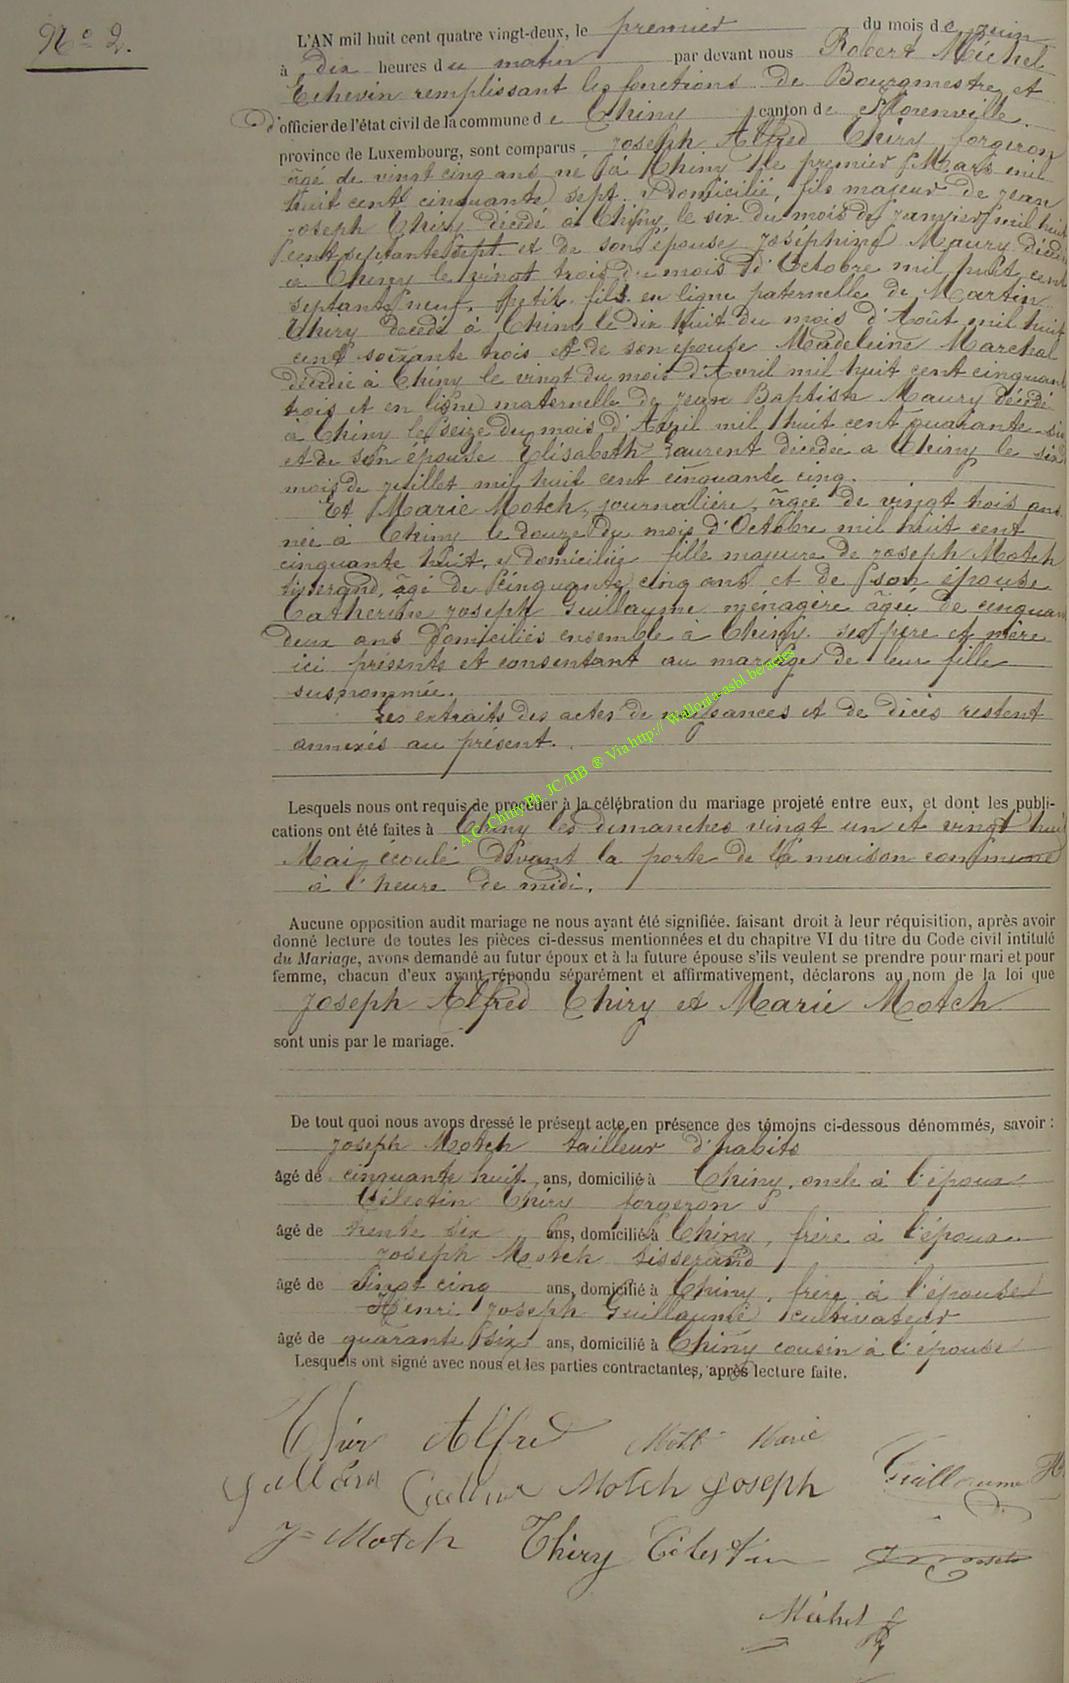 No 2.
L'AN mil huit cent quatre vingt-deux, le premier du mois de juin
à dix heures du matin par devant nous Robert Michel
Echevin remplissant les fonctions de Bourgmestre et
d'officier de l'état civil de la commune de Chiny, canton de Florenville,
province de Luxembourg, sont comparus Joseph Alfred Thiry forgeron
âgé de vingt cinq ans né à Chiny le premier Mars mil
huit cent cinquante sept y domicilié, fils majeur de jean
joseph Thiry décédé à Chiny le six du mois de janvier mil huit
cent septante sept et de son épouse joséphine Maury décédée
à Chiny le vingt trois du mois d'Octobre mil huit cent
septante neuf, petit fils en ligne paternelle de Martin
Thiry décédé à Chiny le dix huit du mois d'Août mil huit
cent soixante trois et de son épouse Madeleine Marchal
décédée à Chiny le vingt du mois d'Avril mil huit cent cinquante
trois et en ligne maternelle de jean Baptiste Maury décédé
à Chiny le seize du mois d'Avril mil huit cent quarante six
et de son épouse Elisabeth Laurent décédée à Chiny le six
mois de juillet mil huit cent cinquante cinq.
Et Marie Motch, journalière, âgée de vingt trois ans
née à Chiny le douze du mois d'Octobre mil huit cent
cinquante huit, y domiciliée fille majeure de joseph Motch
tisserand, âgé de cinquante cinq ans et de son épouse
Catherine joseph Guillaume ménagère âgée de cinquante
deux ans domiciliés ensemble à Chiny. ses père et mère
ici présents et consentant au mariage de leur fille
susnommée.
Les extraits des actes de naissances et de décès restent
annexés au présent.
A.C. Chiny Ph JC/HB ® Via http:// Wallonia-asbl be/actes
Lesquels nous ont requis de procéder à la célébration du mariage projeté entre eux, et dont les publi-
cations ont été faites à Chiny les dimanches vingt un et vingt huit
Mai écoulé devant la porte de la maison commune
à l'heure de midi.
Aucune opposition audit mariage ne nous ayant été signifiée. faisant droit à leur réquisition, après avoir
donné lecture de toutes les pièces ci-dessus mentionnées et du chapitre VI du titre du Code civil intitulé
du Mariage, avons demandé au futur époux et à la future épouse s'ils veulent se prendre pour mari et pour
femme, chacun d'eux ayant répondu séparément et affirmativement, déclarons au nom de la loi que
Joseph Alfred Thiry et Marie Motch
sont unis par le mariage.
De tout quoi nous avons dressé le présent acte en présence des témoins ci-dessous dénommés, savoir :
joseph Motch tailleur d'habits
âgé de cinquante huit ans, domicilié à Chiny, oncle à l'épouse
Célestin Thiry forgeron
âgé de trente six ans, domicilié à Chiny, frère à l'époux
joseph Motch tisserand
âgé de vingt cinq ans, domicilié à Chiny, frère à l'épouse
Henri joseph Guillaume cultivateur
âgé de quarante six ans, domicilié à Chiny cousin à l'épouse
Lesquels ont signé avec nous et les parties contractantes, après lecture faite.
Thiry Alfred Motch Marie
Motch joseph Guillaume H
J= Motch Thiry Célestin
Michel R